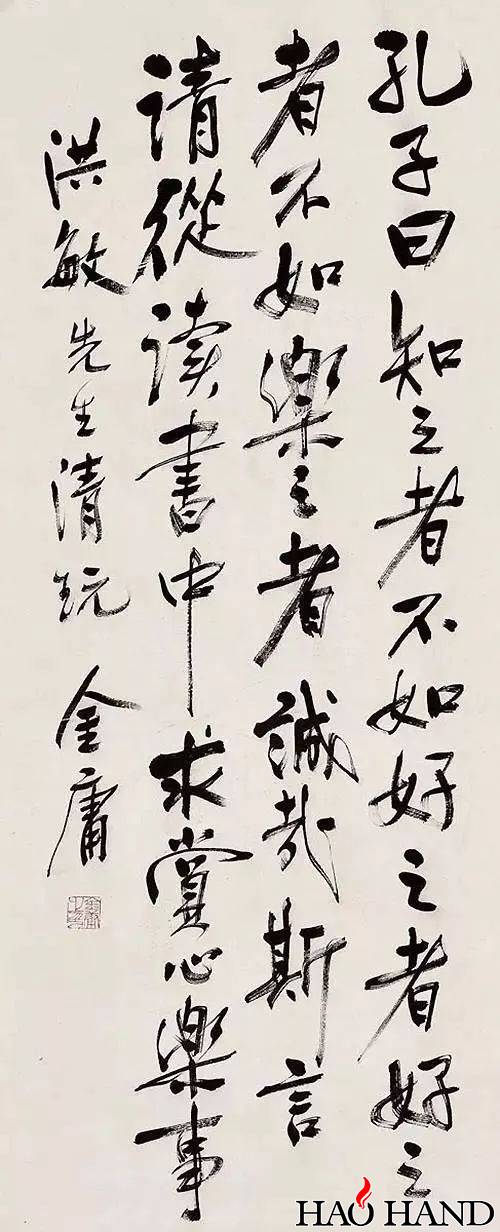 孔子曰知之者不如好之者好之
者不如樂之者誠哉斯言
請從读書中求賞心樂事
洪敏先生清玩 金庸
HAO HAND